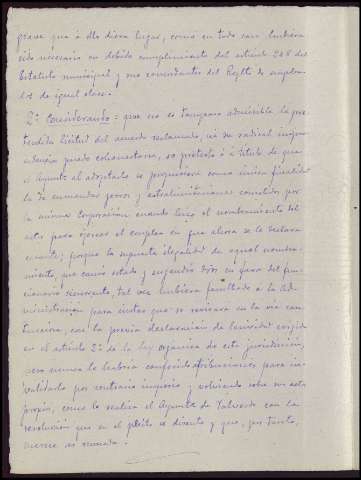 grave que á ello diera lugar, como en todo caso hubiera
sido necesario en debido cumplimiento del artículo 248 del
Estatuto municipal y sus concordantes del Regltº de emplea-
dos de igual clase.
2º Considerando: que no es tampoco admisible la pre-
tendida licitud del acuerdo reclamado, ni su radical
puede cohonestarse, so pretexto ó á título de que
el Ayuntº al adoptarlo se propusiera como única finalidad
la de enmendar yerros y extralimitaciones cometidos por
la misma Corporación cuando hizo el nombramiento del
actor para ejercer el empleo en que ahora se le declara
cesante; porque la supuesta ilegalidad de aquel nombra-
miento, que causó estado y engendró dros en favor del fun-
cionario recurrente, tal vez hubiera facultado á la Ad-
ministración para instar que se revisara en la vía con-
tenciosa, con la previa declaración de lesividad exigida
en el artículo 2º de la ley orgánica de esta jurisdicción,
pero nunca le habría conferido atribuciones para in-
validarlo por contrario imperio y volviendo sobre un acto
propio, como lo realiza el Ayuntº de Valverde con la
resolución que en el pleito se discute y que, por tanto,
merece ser revocada.